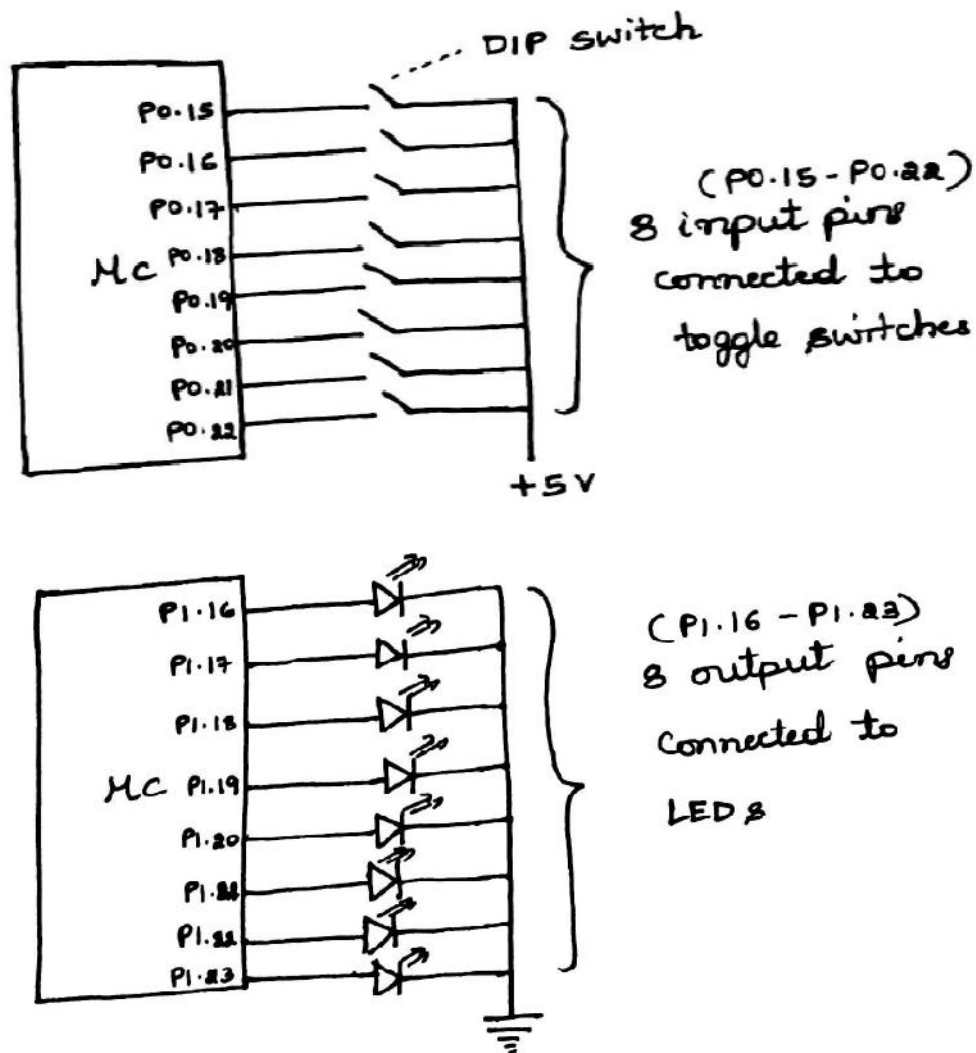 DIP switch
P0.15
P0.16
P0.17
P0.18
P0.19
P0.20
P0.21
P0.22
MC
(P0.15-P0.22)
8 input pins
connected to
toggle switches
+5V
P1.16
P1.17
P1.18
P1.19
P1.20
P1.21
P1.22
P1.23
MC
(P1.16 - P1.23)
8 output pins
connected to
LEDs